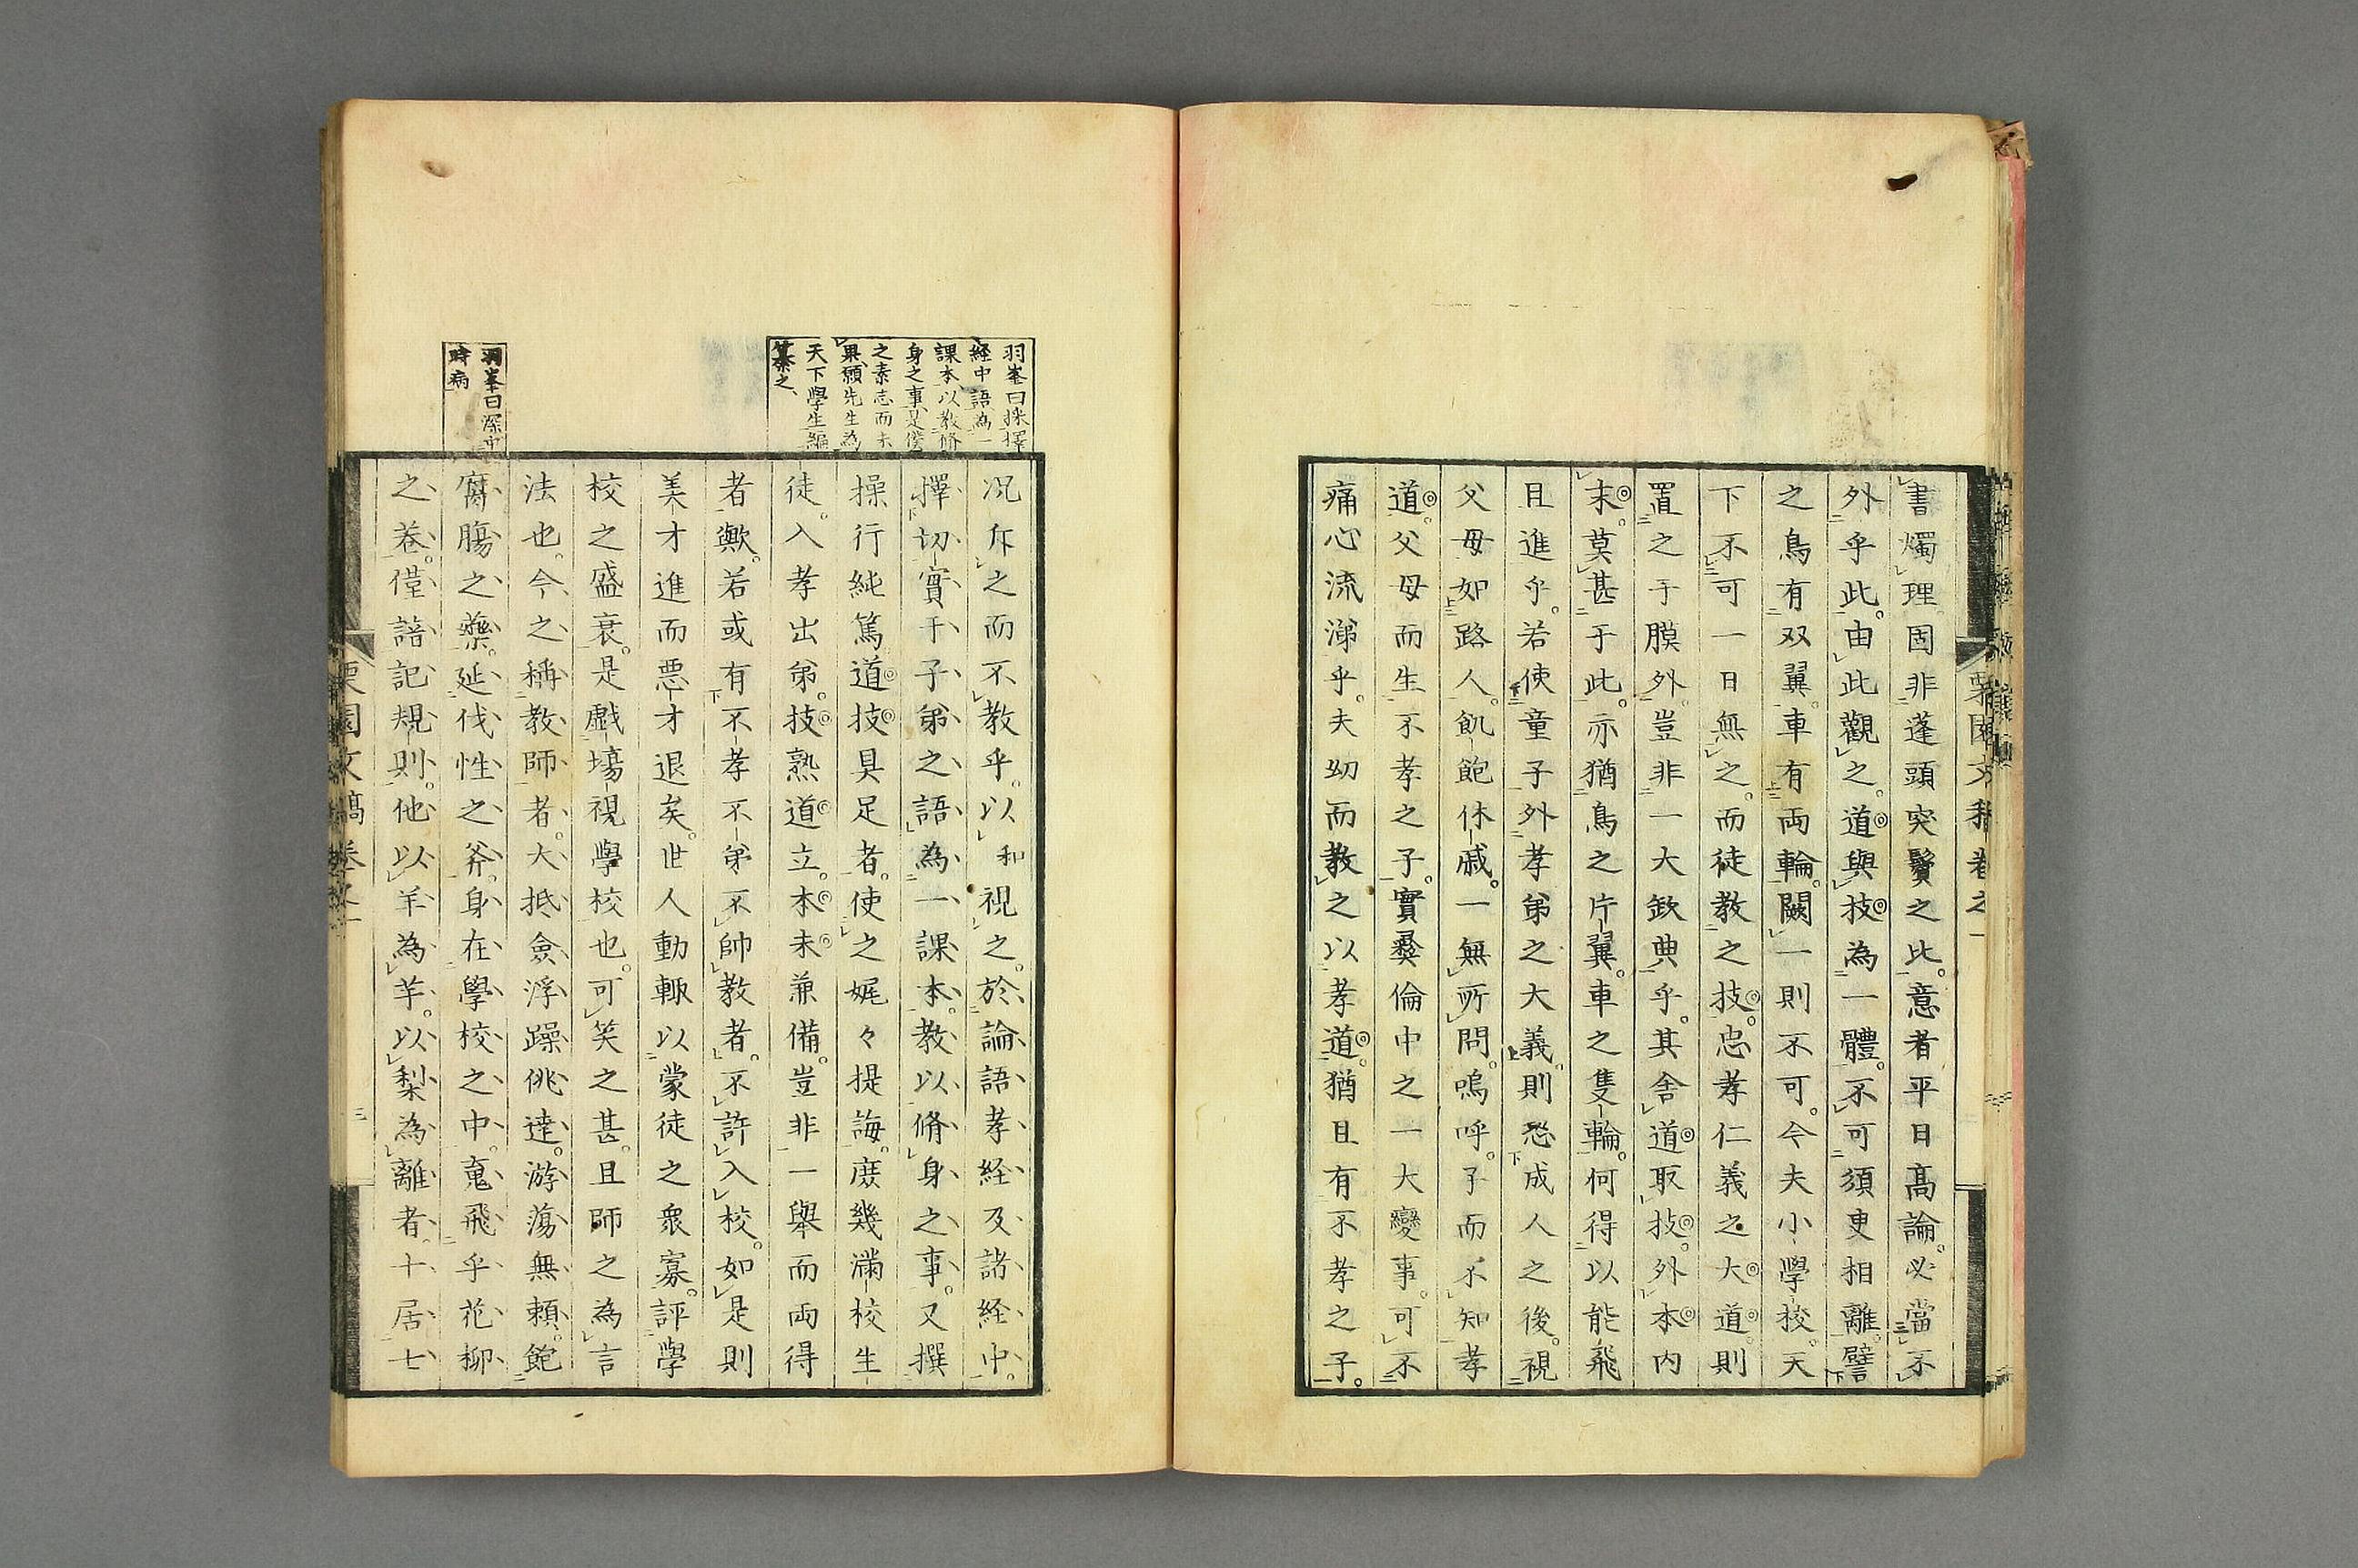 書燭理固非蓬頭突鬢之比。意者平日高論。必當不
外乎此。由此觀之。道與技為一體。不可須臾相離。譬
之鳥有双翼。車有両輪。闕一則不可。今夫小學校。天
下不可一日無之。而徒教之技。忠孝仁義之大道。則
置之于膜外。豈非一大欠典乎。其舎道取技。外本内
末。莫甚于此。亦猶鳥之片翼。車之隻輪。何得以能飛
且進乎。若使童子外孝弟之大義。則恐成人之後。視
父母如路人。飢飽休戚。一無所問。嗚呼。子而不知孝
道。父母而生不孝之子。實彜倫中之一大變事。可不
痛心流涕乎。夫幼而教之以孝道。猶且有不孝之子。
况斥之而不教乎。以和視之。於論語孝経及諸経中。
擇切實于子弟之語。為一課本。教以脩身之事。又撰
操行純篤道技具足者。使之娓々提誨。庶幾満校生
徒。入孝出弟。技熟道立。本末兼備。豈非一舉而両得
者歟。若或有不孝不弟不帥教者。不許入校。如是則
美才進而悪才退矣。世人動輙以蒙徒之衆寡。評學
校之盛衰。是戯場視學校也。可笑之甚。且師之為言
法也。今之稱教師者。大抵僉浮躁佻達。游蕩無頼。飽
腐腸之藥。延伐性之斧。身在學校之中。䰟飛乎花柳
之巷。僅諳記規則。他以羊為羊。以梨為離者。十居七
羽峯曰採擇
経中語為一
課本以教脩
身之事是僕
之素志而未
果願先生為
天下學生編
纂之、
羽峯曰深中
時病
栗園文稿巻之一
三